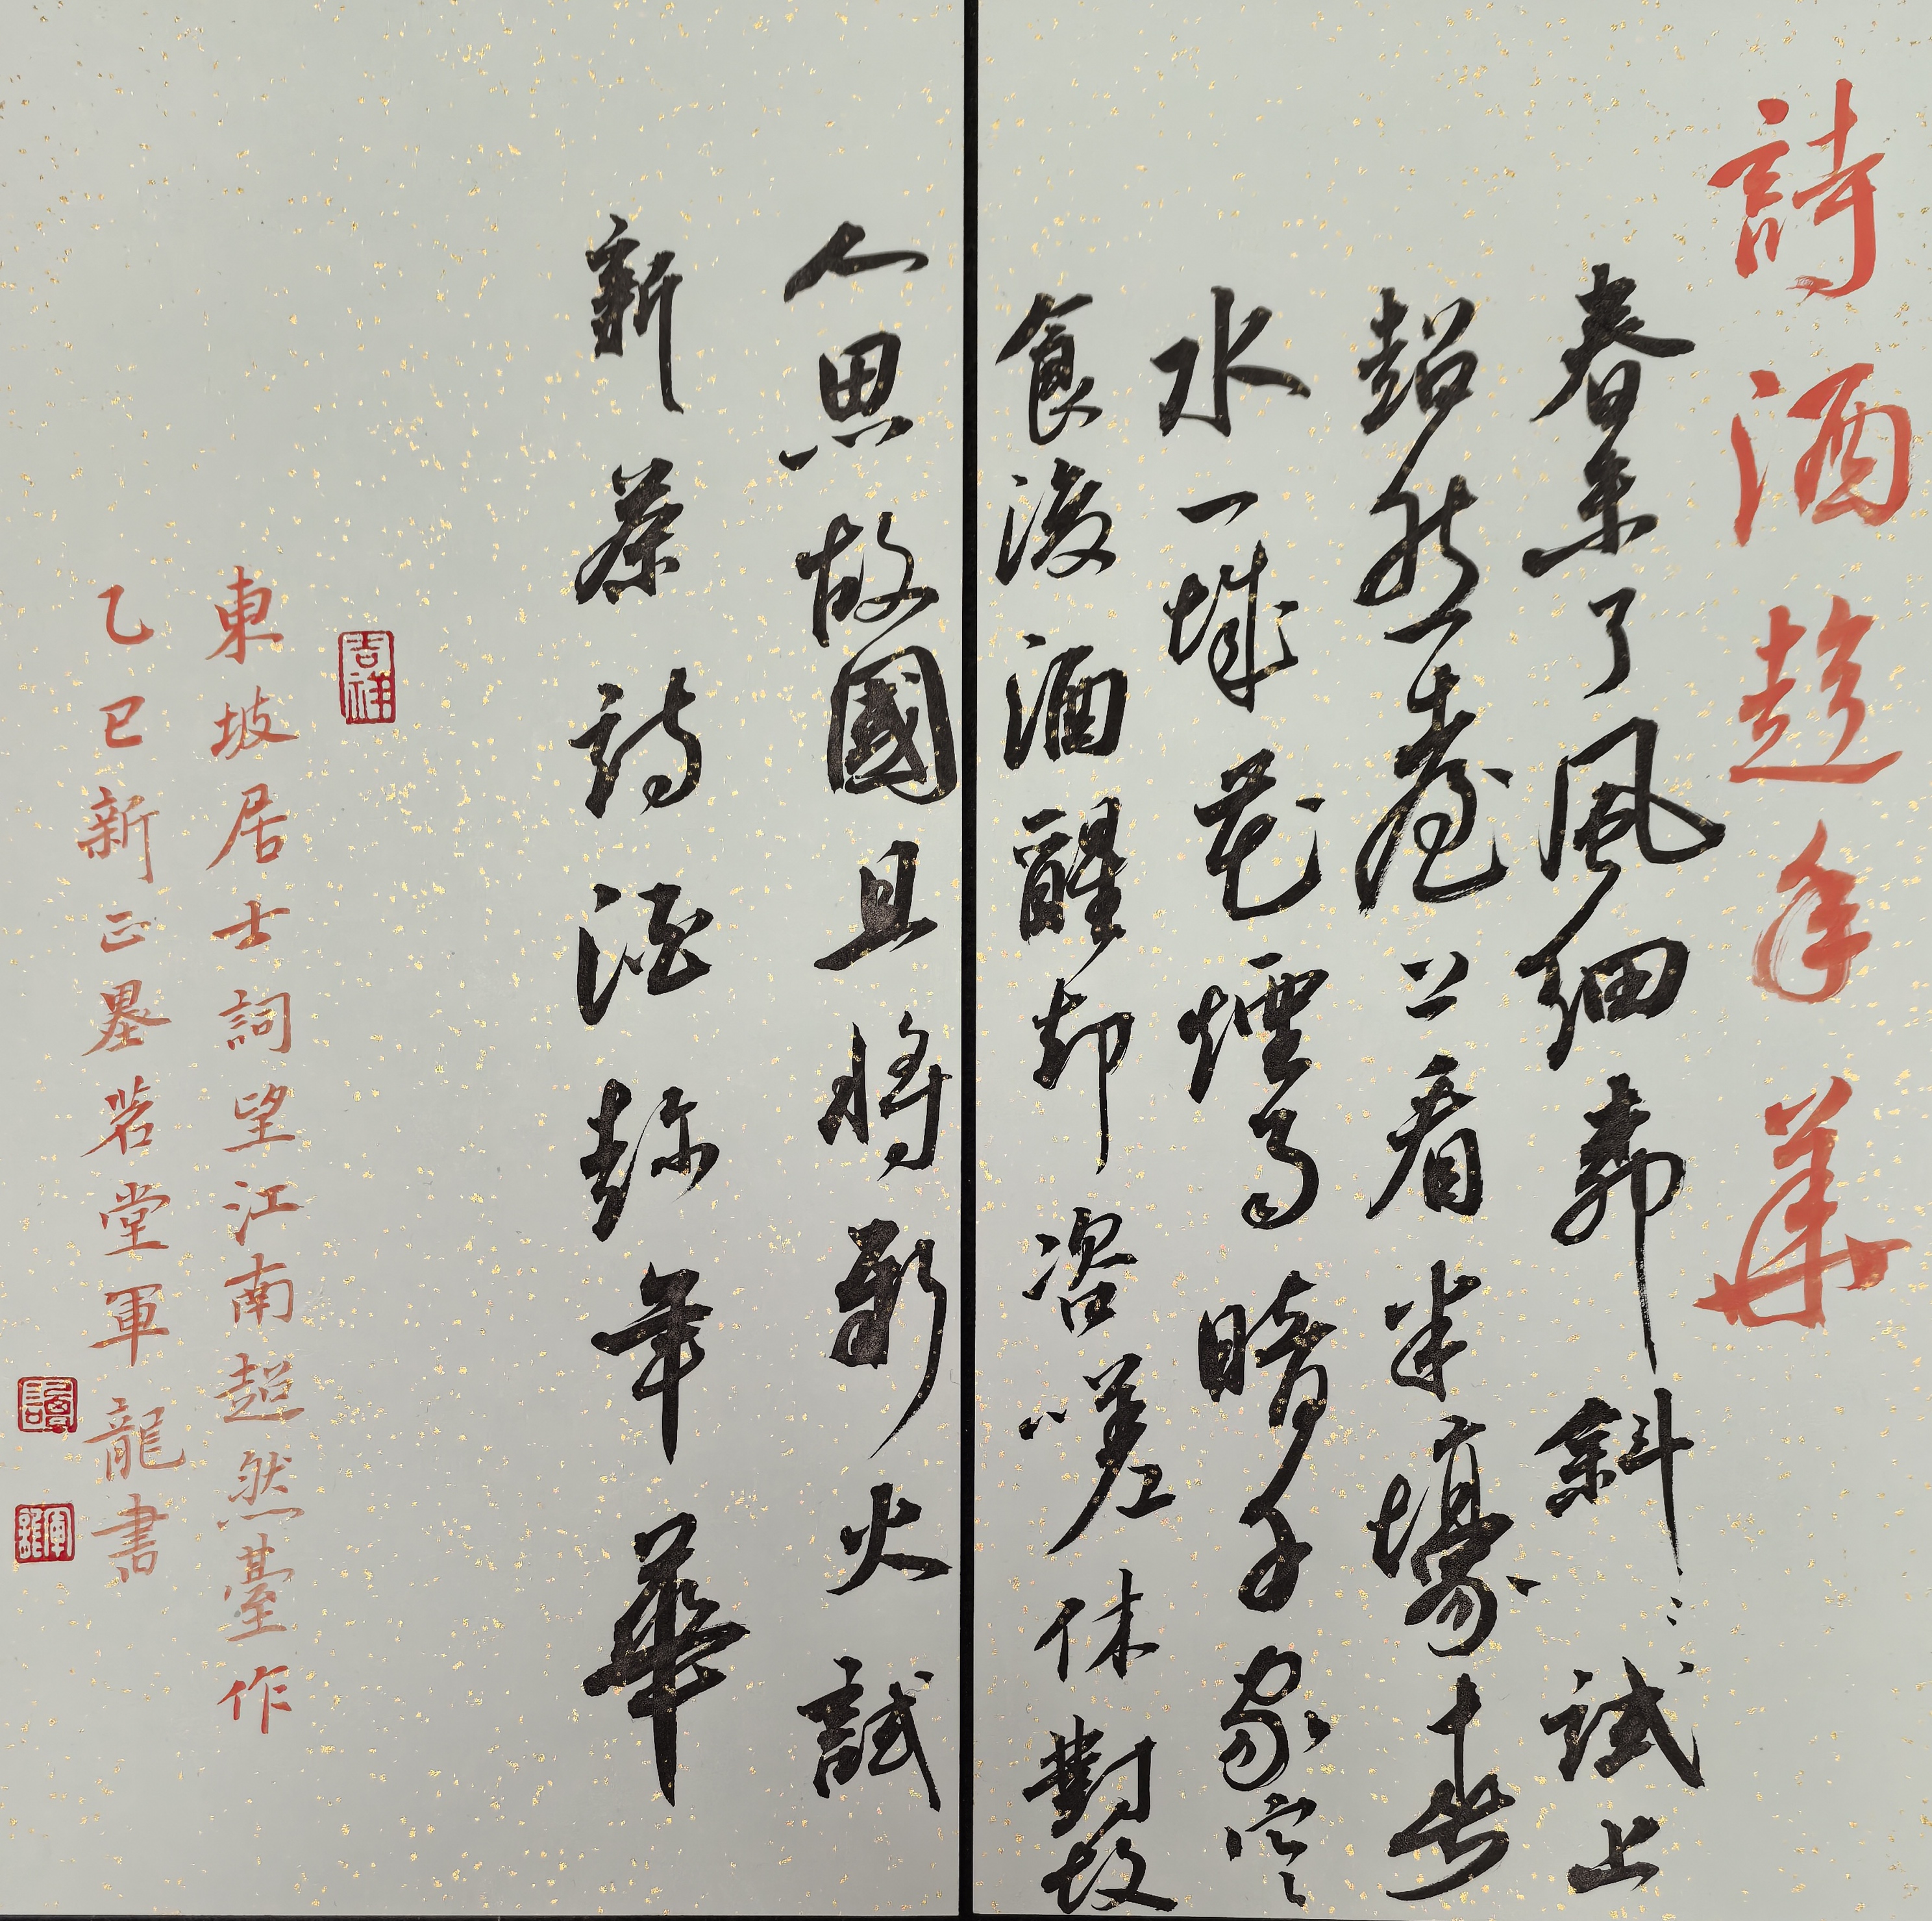 詩酒趁年華
春未了風細柳斜〻試上
超然臺上看半壕春
水一城花煙雨暗千家寒
食後酒醒却咨嗟休對故
人思故國且將新火試
新茶詩酒趁年華
吉祥
東坡居士詞望江南超然臺作
乙巳新正墨茗堂軍龍書
軍龍